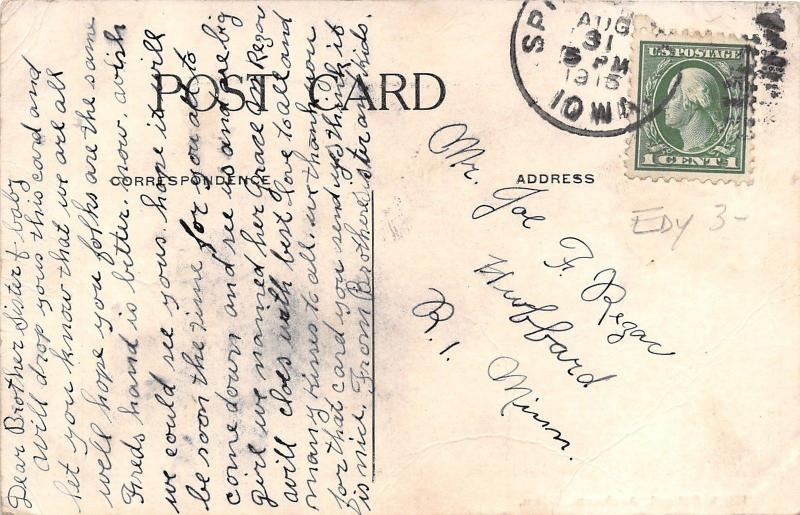 POST CARD
CORRESPONDENCE
ADDRESS
Dear Brother Sister & baby
Will drop yous this card and
let you know that we are all
well hope you folks are the same
Freds hand is better now. wish
we could see yous. hope it will
be soon the time for you all to
come down and see us and our big
girl we named her Grace A Rezac
will close with best love to all and
many kisses to all. we thank you
for that card you send us think it
is nice. From Brother sister and kids.
Mr. Joe F. Rezac
Hubbard
R. 1. Minn.
SP
AUG
31
PM
1915
IOWA
U.S. POSTAGE
1 CENT 1
EDY 3-